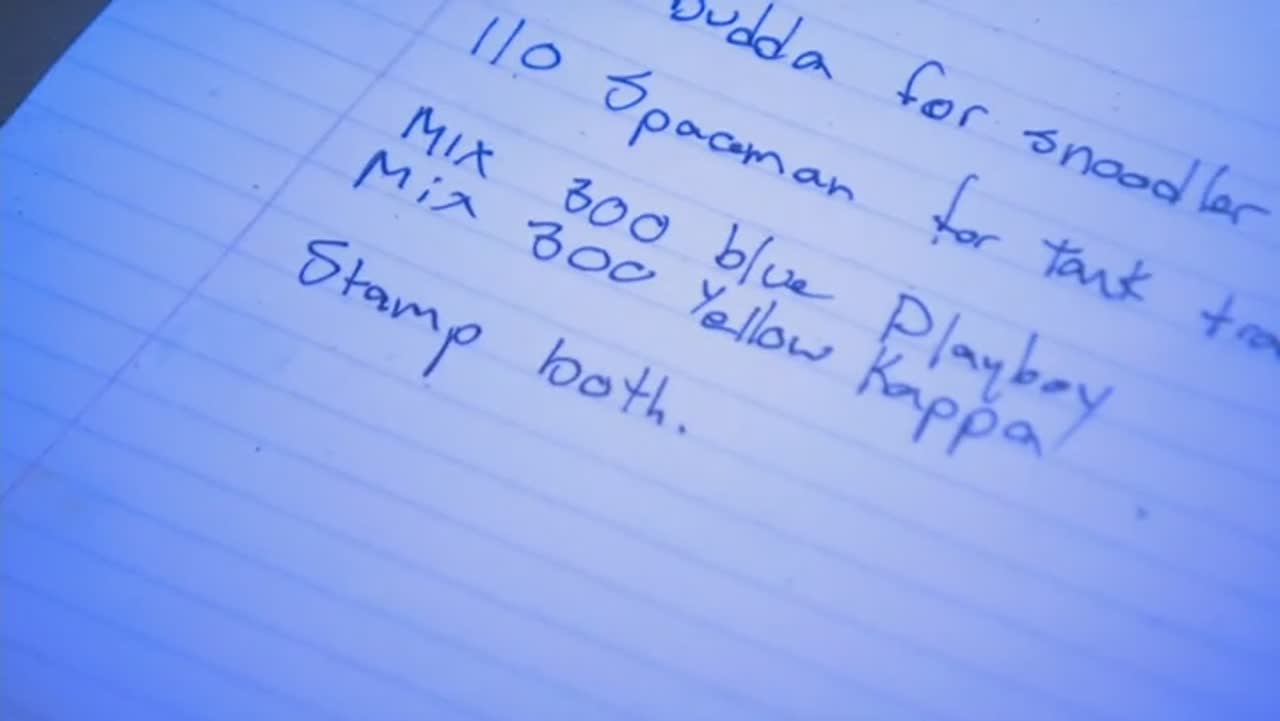 Budda for snoodler
110 Spaceman for Tank tra
Mix 300 blue Playboy
Mix 300 Yellow Kappa
Stamp both.